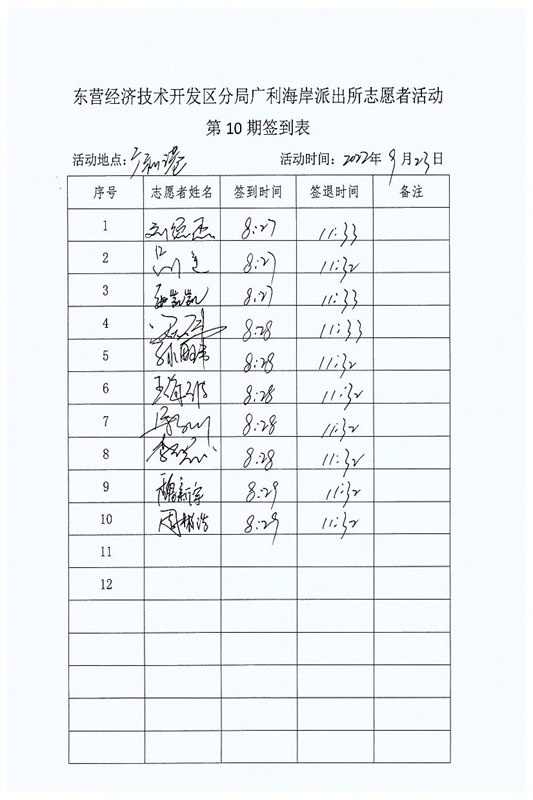 东营经济技术开发区分局广利海岸派出所志愿者活动
第 10 期签到表
活动地点：广利港 活动时间：2022年 9月23日
序号 志愿者姓名 签到时间 签退时间 备注
1 8:27 11:33
2 8:27 11:32
3 凯凯 8:27 11:33
4 8:28 11:33
5 孙明伟 8:28 11:32
6 王海 8:28 11:32
7 8:28 11:32
8 李 8:28 11:32
9 魏新宇 8:29 11:32
10 周 浩 8:29 11:32
11
12